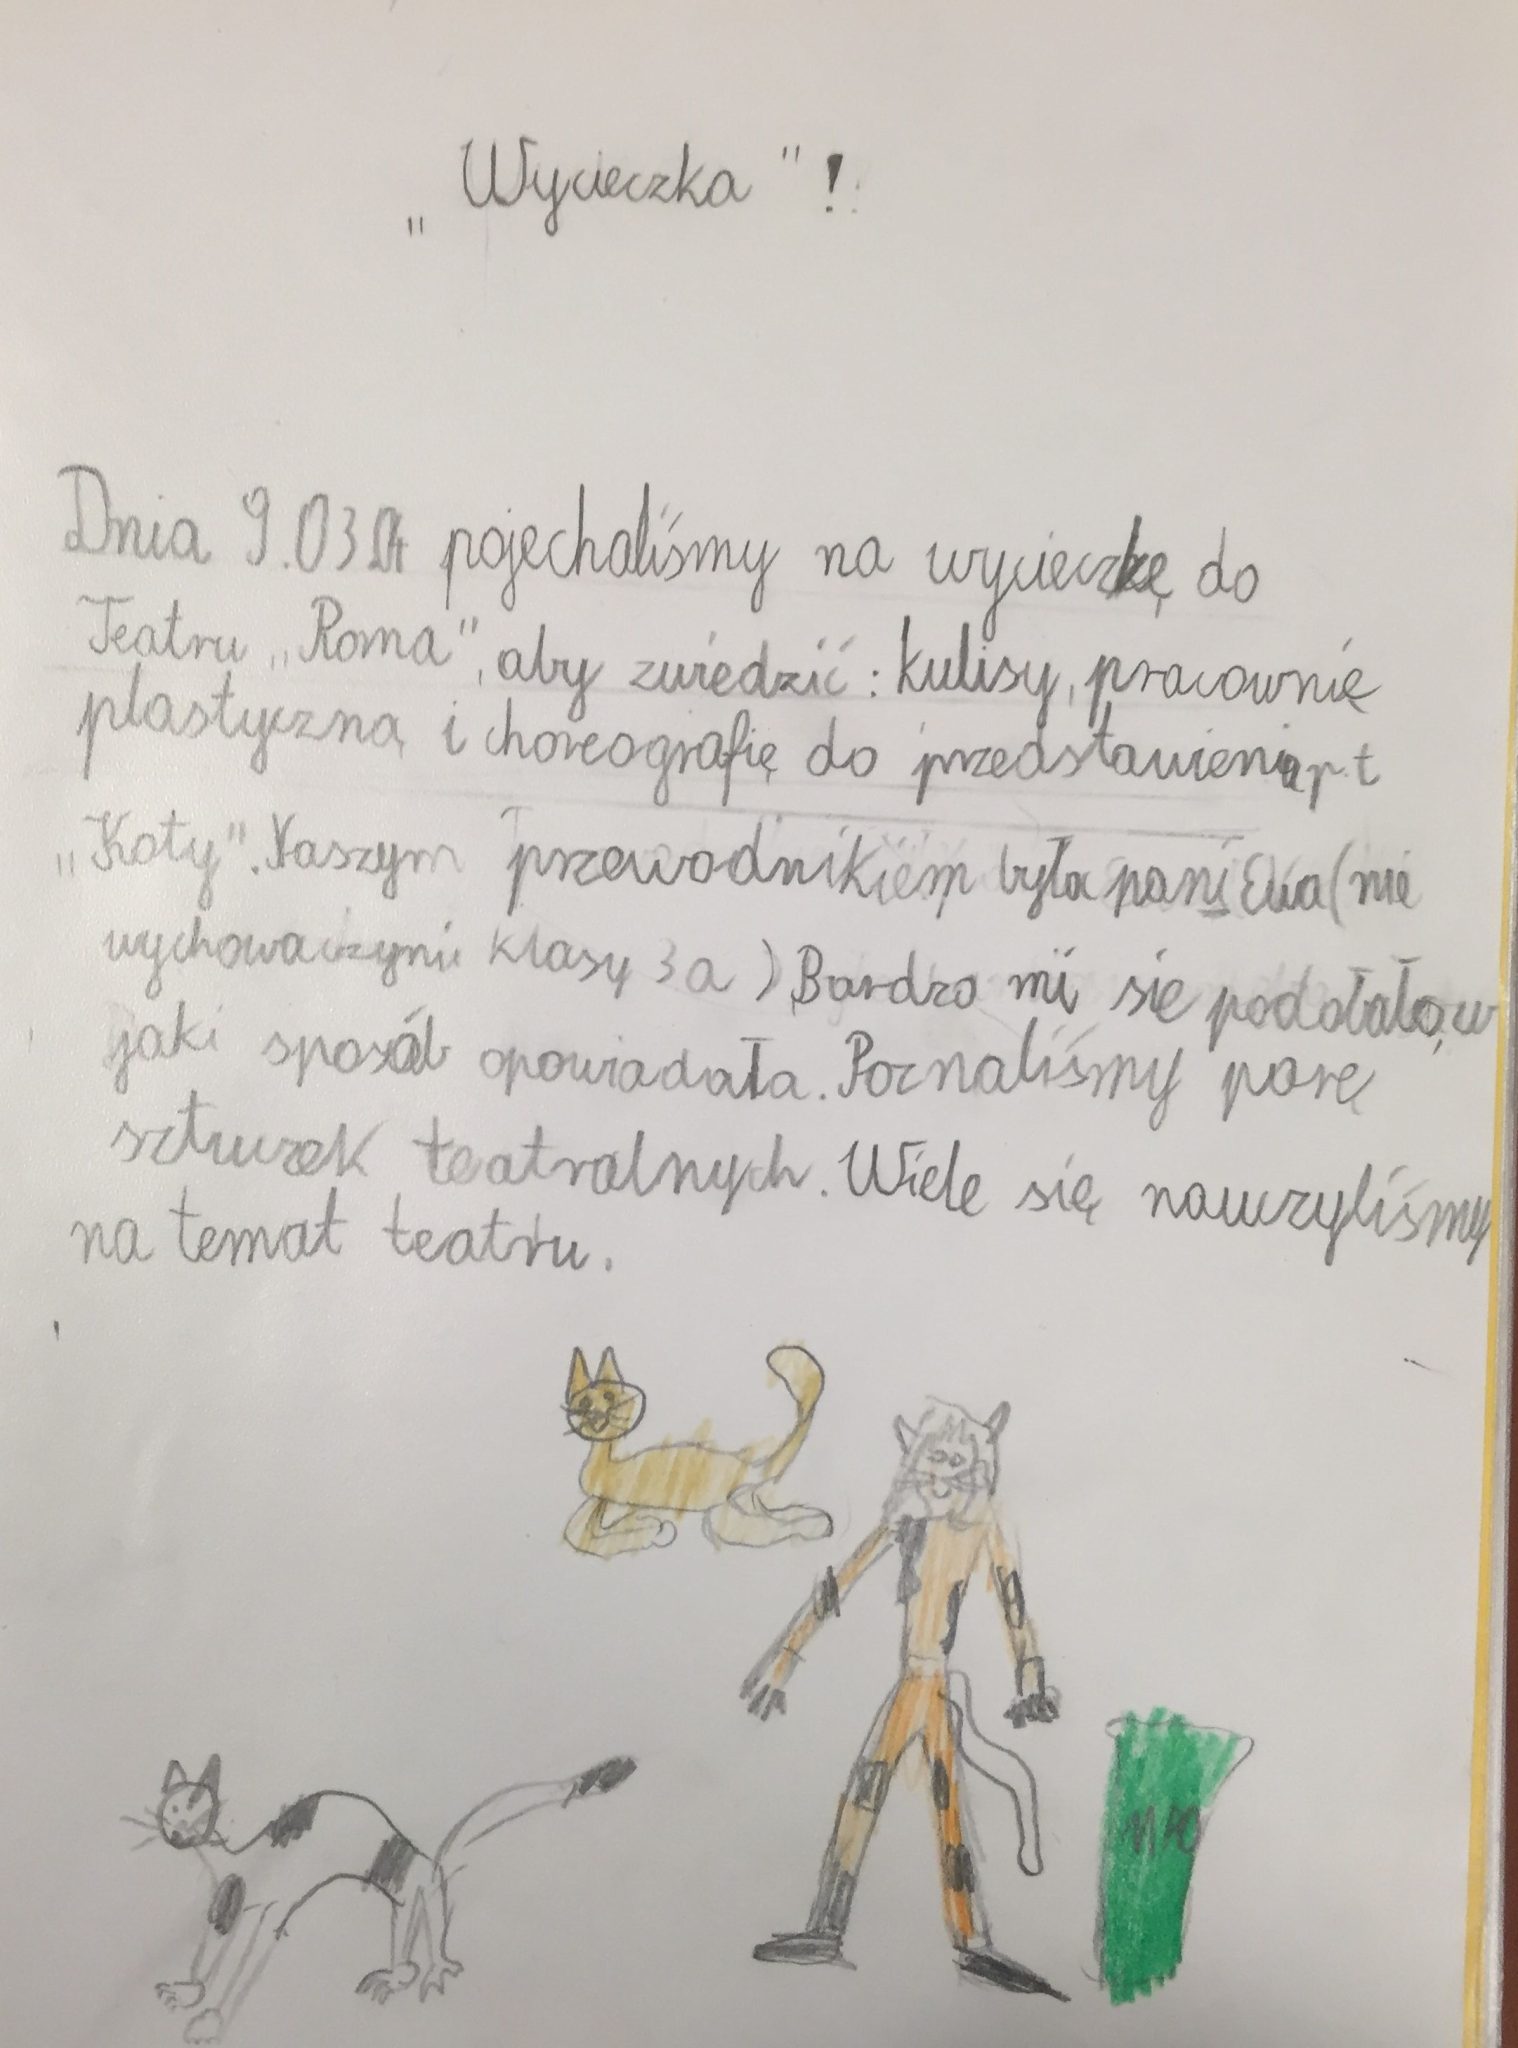 „Wycieczka"!
Dnia 9.03 pojechaliśmy na wycieczkę do
Teatru „Roma", aby zwiedzić: kulisy, pracownię
plastyczną i choreografię do przedstawienia p.t
„Koty". Naszym przewodnikiem była pani Ewa (nie
wychowaczyni klasy 3a) Bardzo mi się poddałało, w
jaki sposób opowiadała. Poznaliśmy parę
sztuczek teatralnych. Wiele się nauczyliśmy
na temat teatru.